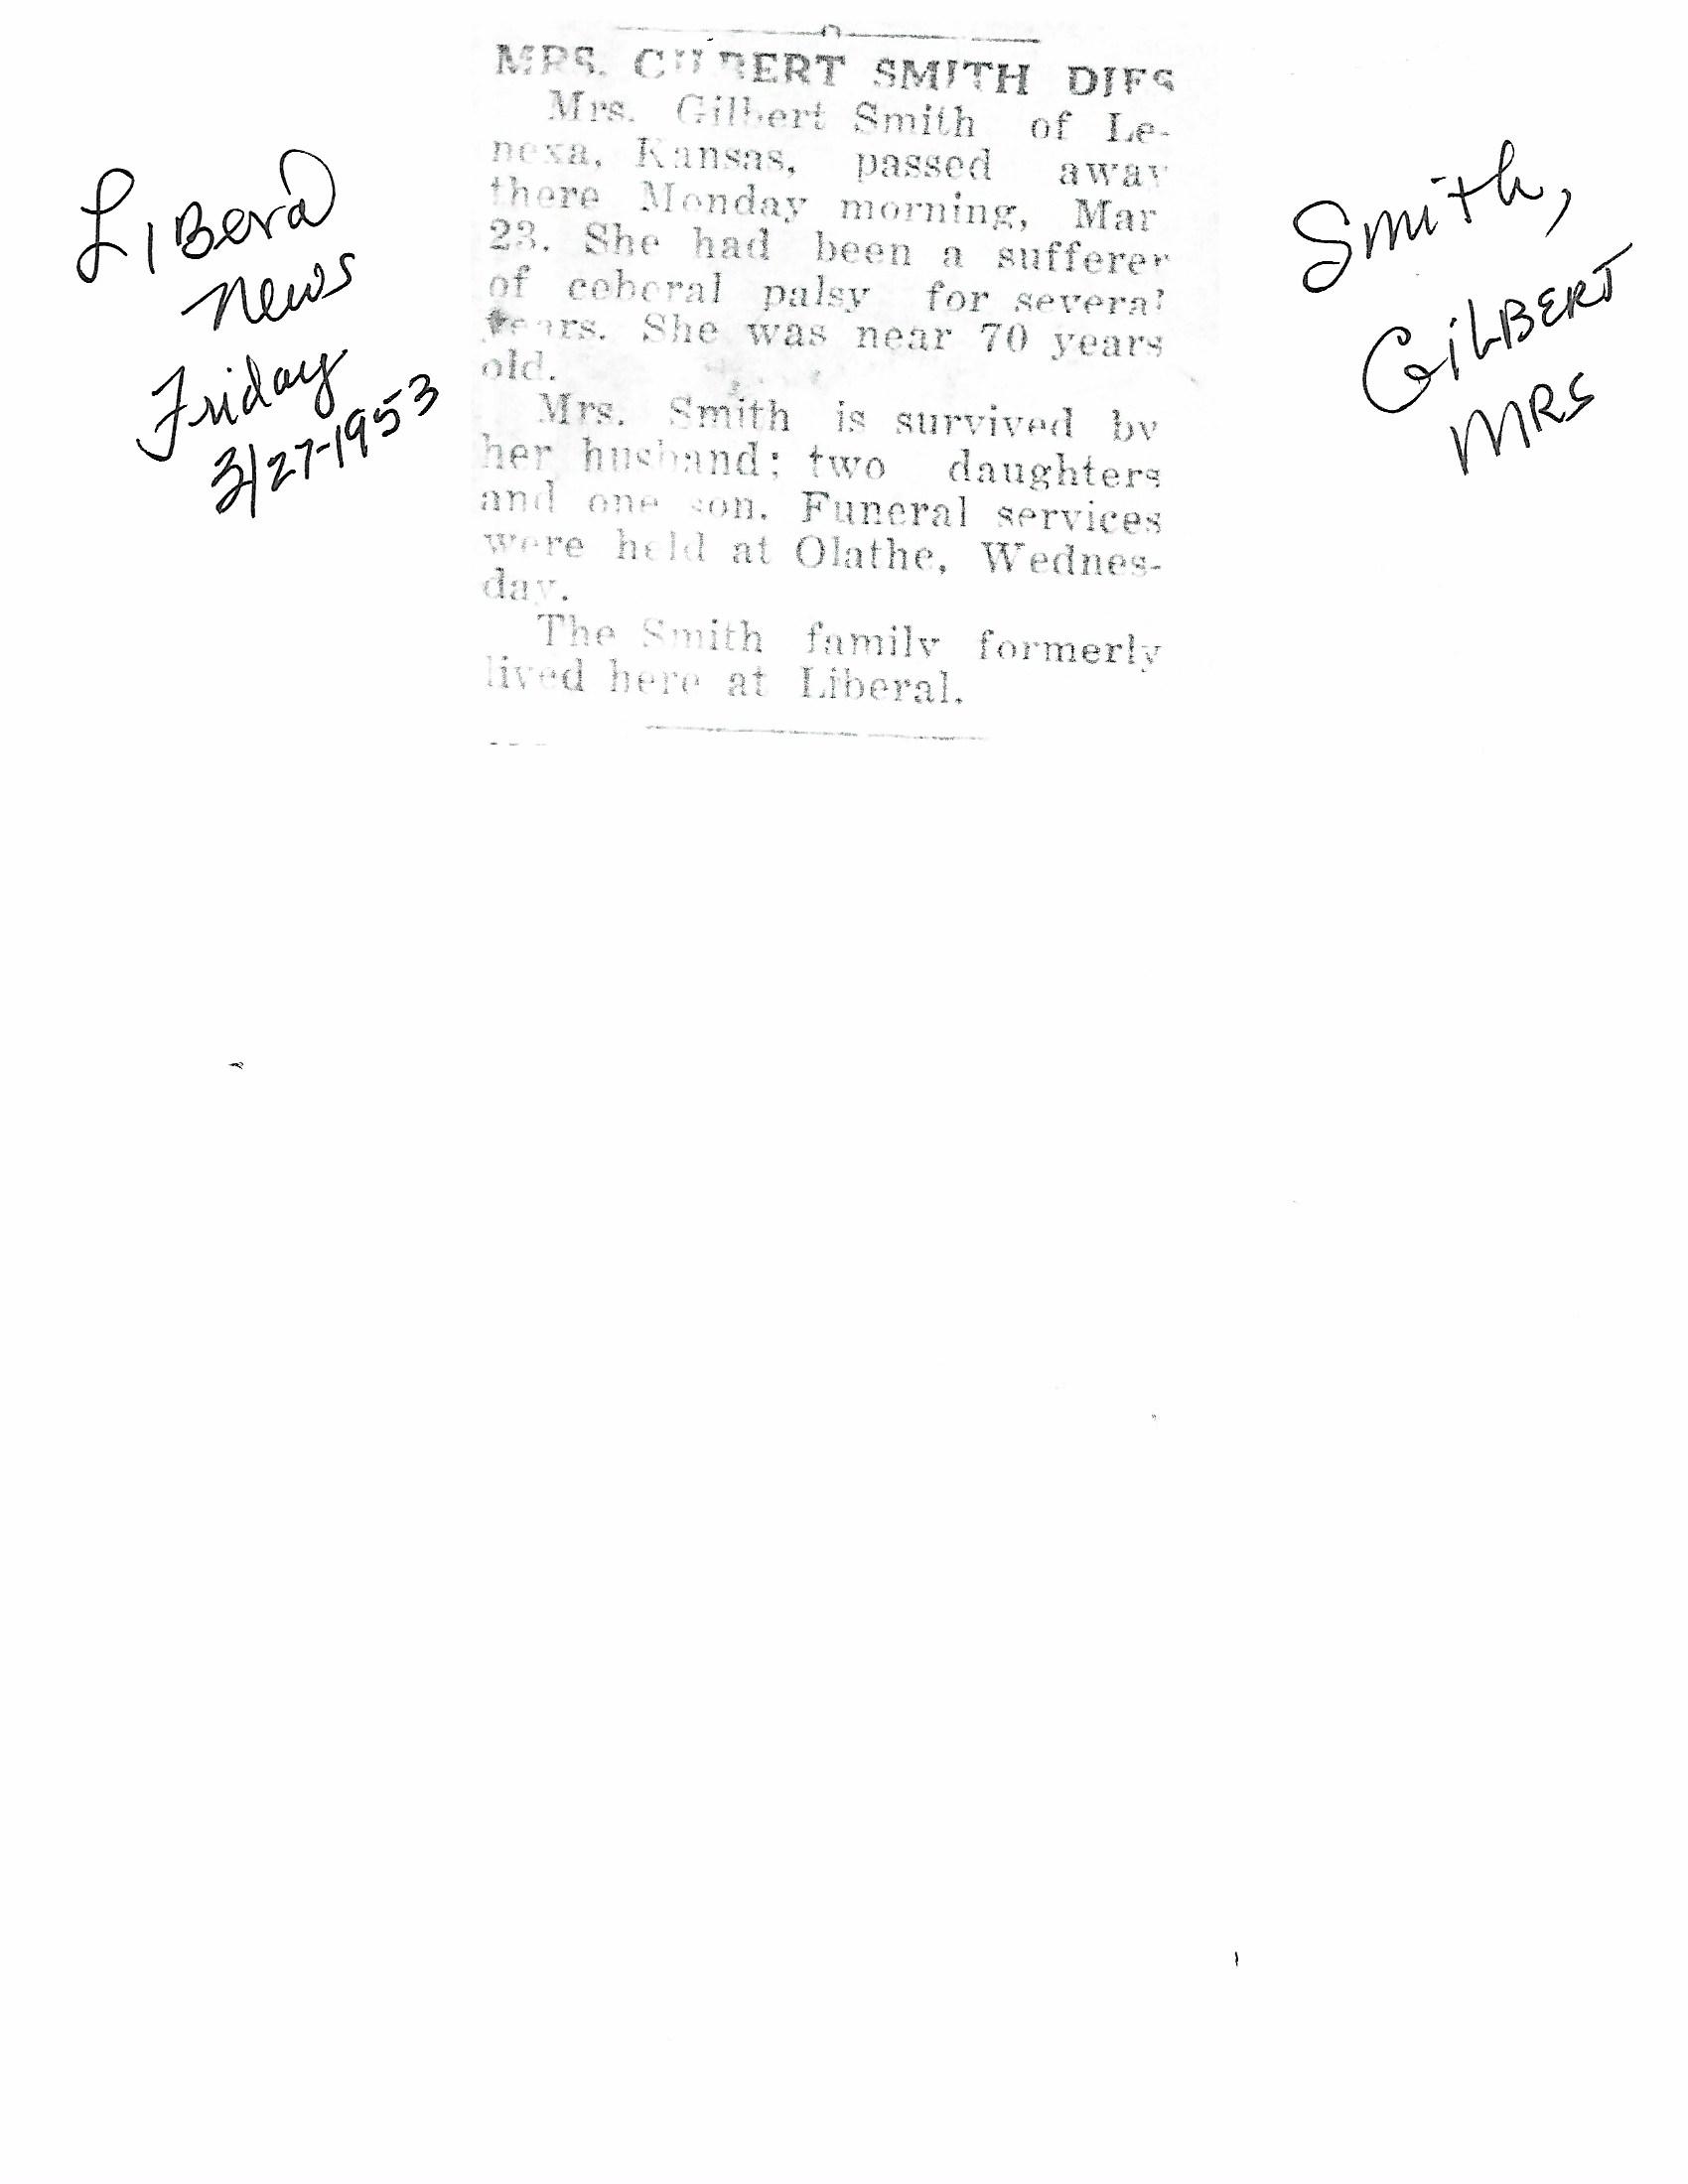 MRS. GILBERT SMITH DIES
Mrs. Gilbert Smith of Le-
nexa, Kansas, passed away
there Monday morning, Mar
23. She had been a sufferer
of coberal palsy for several
years. She was near 70 years
old.
Mrs. Smith is survived by
her husband; two daughters
and one son. Funeral services
were held at Olathe, Wednes-
day.
The Smith family formerly
lived here at Liberal.
Liberal
News
Friday
3/27-1953
Smith,
GiLBERT
MRS